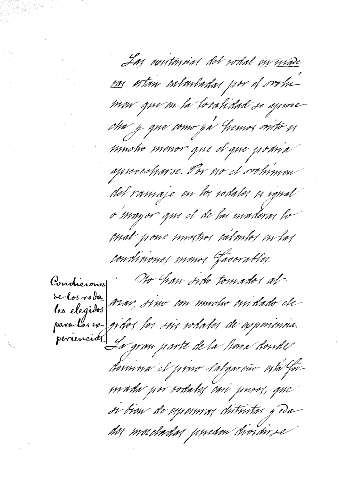 Las existencias del rodal en made-
ras estan calculadas por el volú-
men que en la localidad se aprove-
cha y que como yá hemos visto es
mucho menor que el que podria
aprovecharse. Por no el volúmen
del ramaje en los rodales es igual
ó mayor que el de las maderas lo
cual pone nuestros cálculos en las
condiciones menos favorables.
Condiciones
de los roda-
les elegidos
para las ex-
periencias.
No han sido tomados al
azar, sino con mucho cuidado ele-
gidos los seis rodales de experiencia.
La gran parte de la zona donde
domina el pino salgareño está for-
mada por rodales casi puros, que
si bien de espesuras distintas y eda-
des mezcladas pueden dividirse